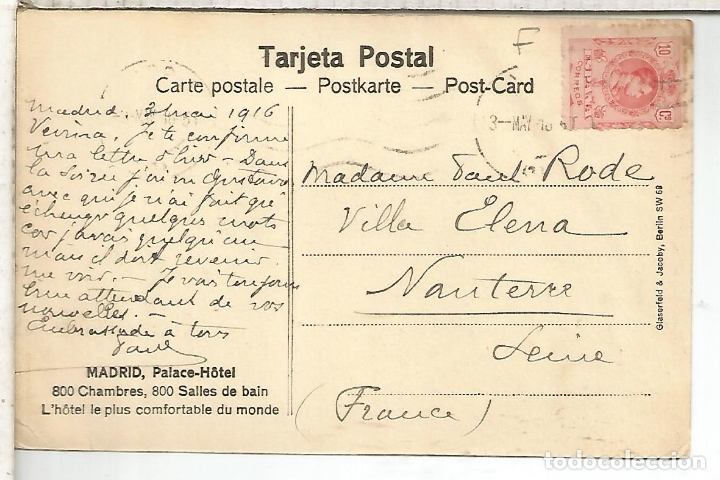 Tarjeta Postal
Carte postale — Postkarte — Post-Card
F
10 Cs
ESPAÑA
CORREOS
3-MAY
Madrid, 3 mai 1916
Je te confirme
ma lettre d'hier – Dans
la soirée j'ai vu Gustave
avec qui je n'ai fait qu'
échanger quelques mots
car j'avais quelqu'un
mais il doit revenir
me voir. – Je vais toujours
en attendant de vos
nouvelles. –
Embrassade à tous
Paul
Madame Paul Rode
Villa Elena
Nanterre
Seine
(France)
MADRID, Palace-Hôtel
800 Chambres, 800 Salles de bain
L'hôtel le plus comfortable du monde
Glaserfeld & Jacoby, Berlin SW 68
todocoleccion.net